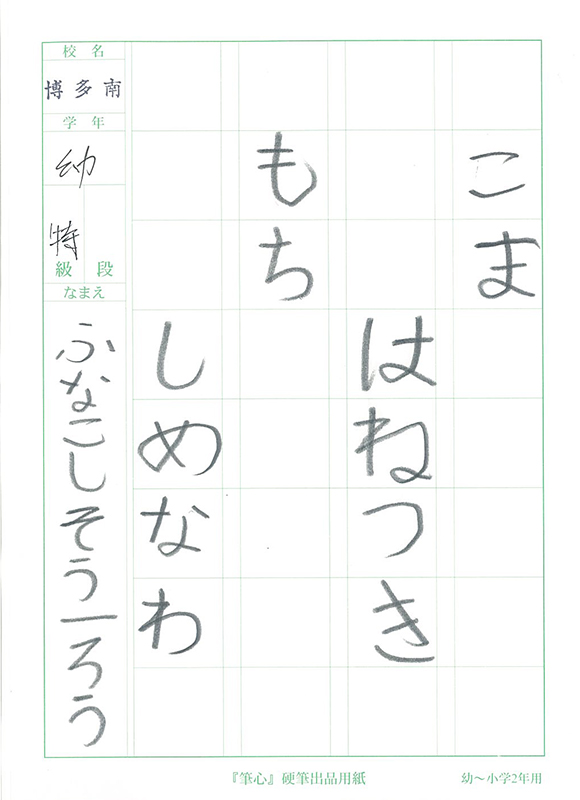 こま
はねつき
もち
しめなわ
校名
博多南
学年
幼
特
級 段
なまえ
ふなこしそう一ろう
『筆心』硬筆出品用紙
幼〜小学2年用